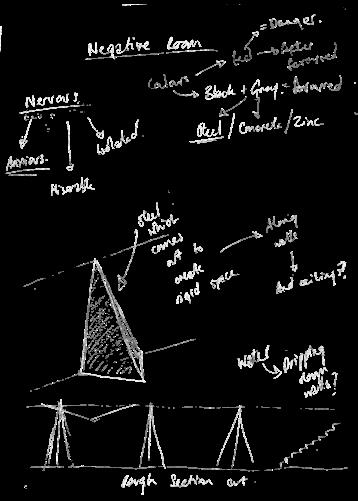 Negative Room
= Danger.
Red
Colours
Black + Gray =
Steel / Concrete / Zinc
Nervous.
Anxious.
Miserable
Isolated.
Steel
which
comes
out to
create
rigid space
Along
walls
And ceiling??
Water
Dripping
down
walls?
Rough Section cut.